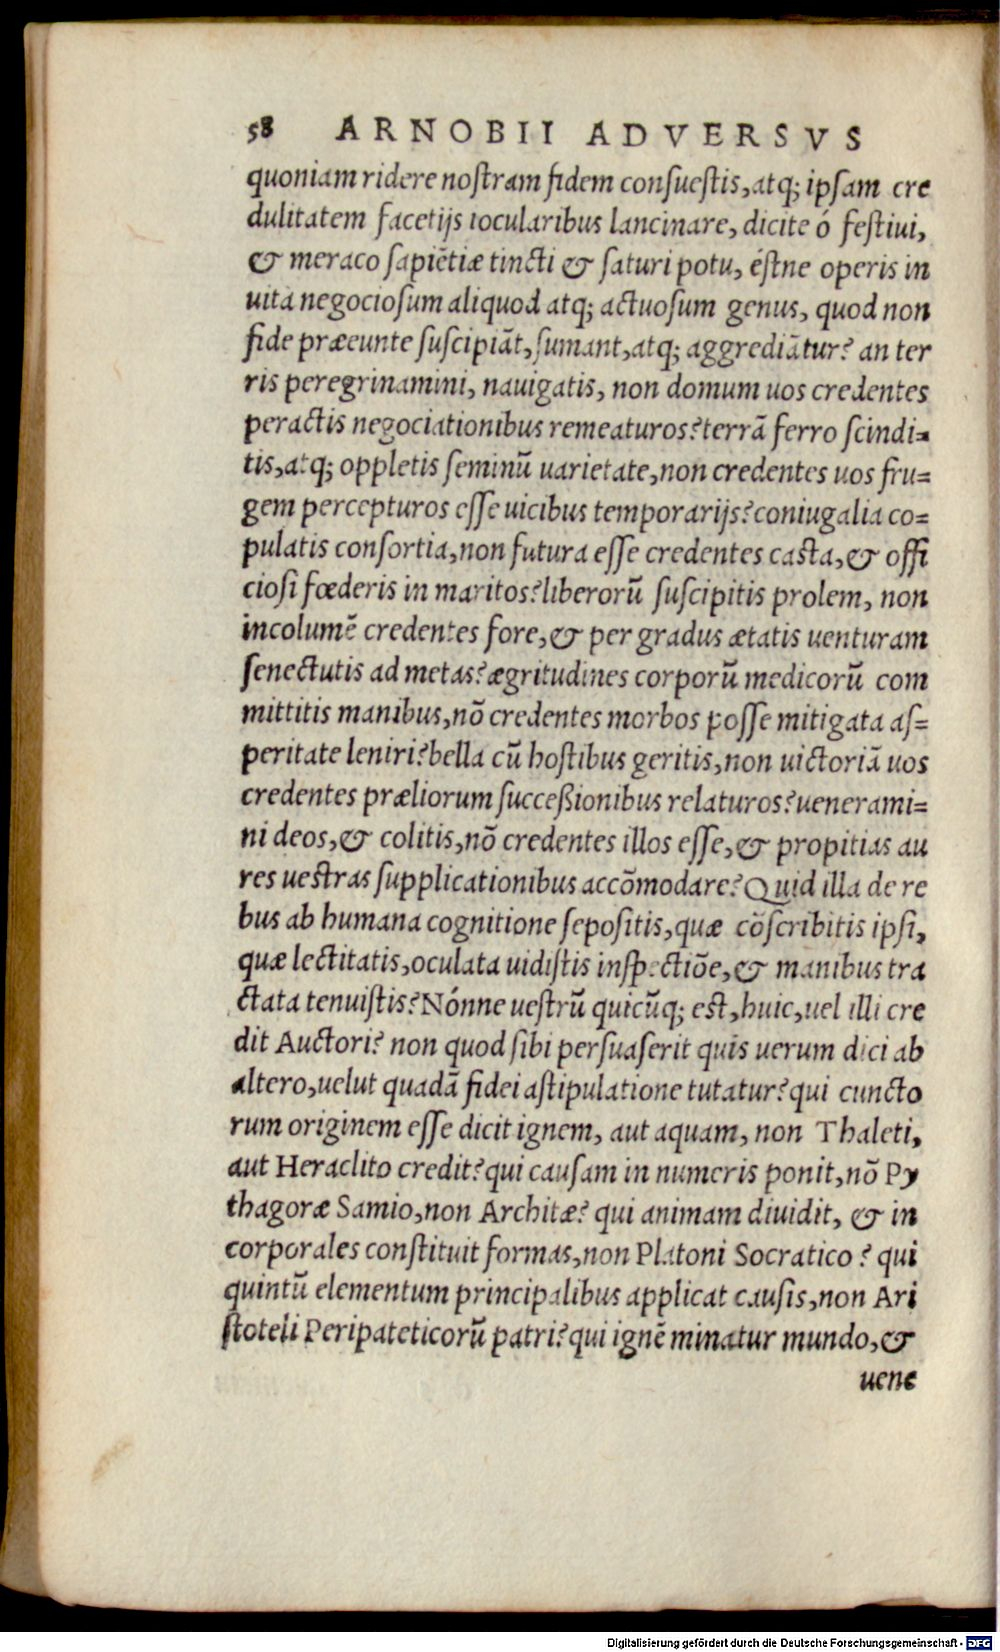 58 ARNOBII ADVERSVS
quoniam ridere nostram fidem consuestis, atq; ipsam cre
dulitatem facetijs iocularibus lancinare, dicite ó festiui,
& meraco sapiẽtiæ tincti & saturi potu, éstne operis in
uita negociosum aliquod atq; actuosum genus, quod non
fide præeunte suscipiãt, sumant, atq; aggrediãtur? an ter
ris peregrinamini, nauigatis, non domum uos credentes
peractis negociationibus remeaturos? terrã ferro scindi=
tis, atq; oppletis seminũ uarietate, non credentes uos fru=
gem percepturos esse uicibus temporarijs? coniugalia co=
pulatis consortia, non futura esse credentes casta, & offi
ciosi fœderis in maritos? liberorũ suscipitis prolem, non
incolumẽ credentes fore, & per gradus ætatis uenturam
senectutis ad metas? ægritudines corporũ medicorũ com
mittitis manibus, nõ credentes morbos posse mitigata as=
peritate leniri? bella cũ hostibus geritis, non uictoriã uos
credentes præliorum successionibus relaturos? uenerami=
ni deos, & colitis, nõ credentes illos esse, & propitias au
res uestras supplicationibus accõmodare? Quid illa de re
bus ab humana cognitione sepositis, quæ cõscribitis ipsi,
quæ lectitatis, oculata uidistis inspectiõe, & manibus tra
ctata tenuistis? Nónne uestrũ quicũq; est, huic, uel illi cre
dit Auctori? non quod sibi persuaserit quis uerum dici ab
altero, uelut quadã fidei astipulatione tutatur? qui cuncto
rum originem esse dicit ignem, aut aquam, non Thaleti,
aut Heraclito credit? qui causam in numeris ponit, nõ Py
thagoræ Samio, non Architæ? qui animam diuidit, & in
corporales constituit formas, non Platoni Socratico? qui
quintũ elementum principalibus applicat causis, non Ari
stoteli Peripateticorũ patri? qui ignẽ minatur mundo, &
uene
Digitalisierung gefördert durch die Deutsche Forschungsgemeinschaft - DFG